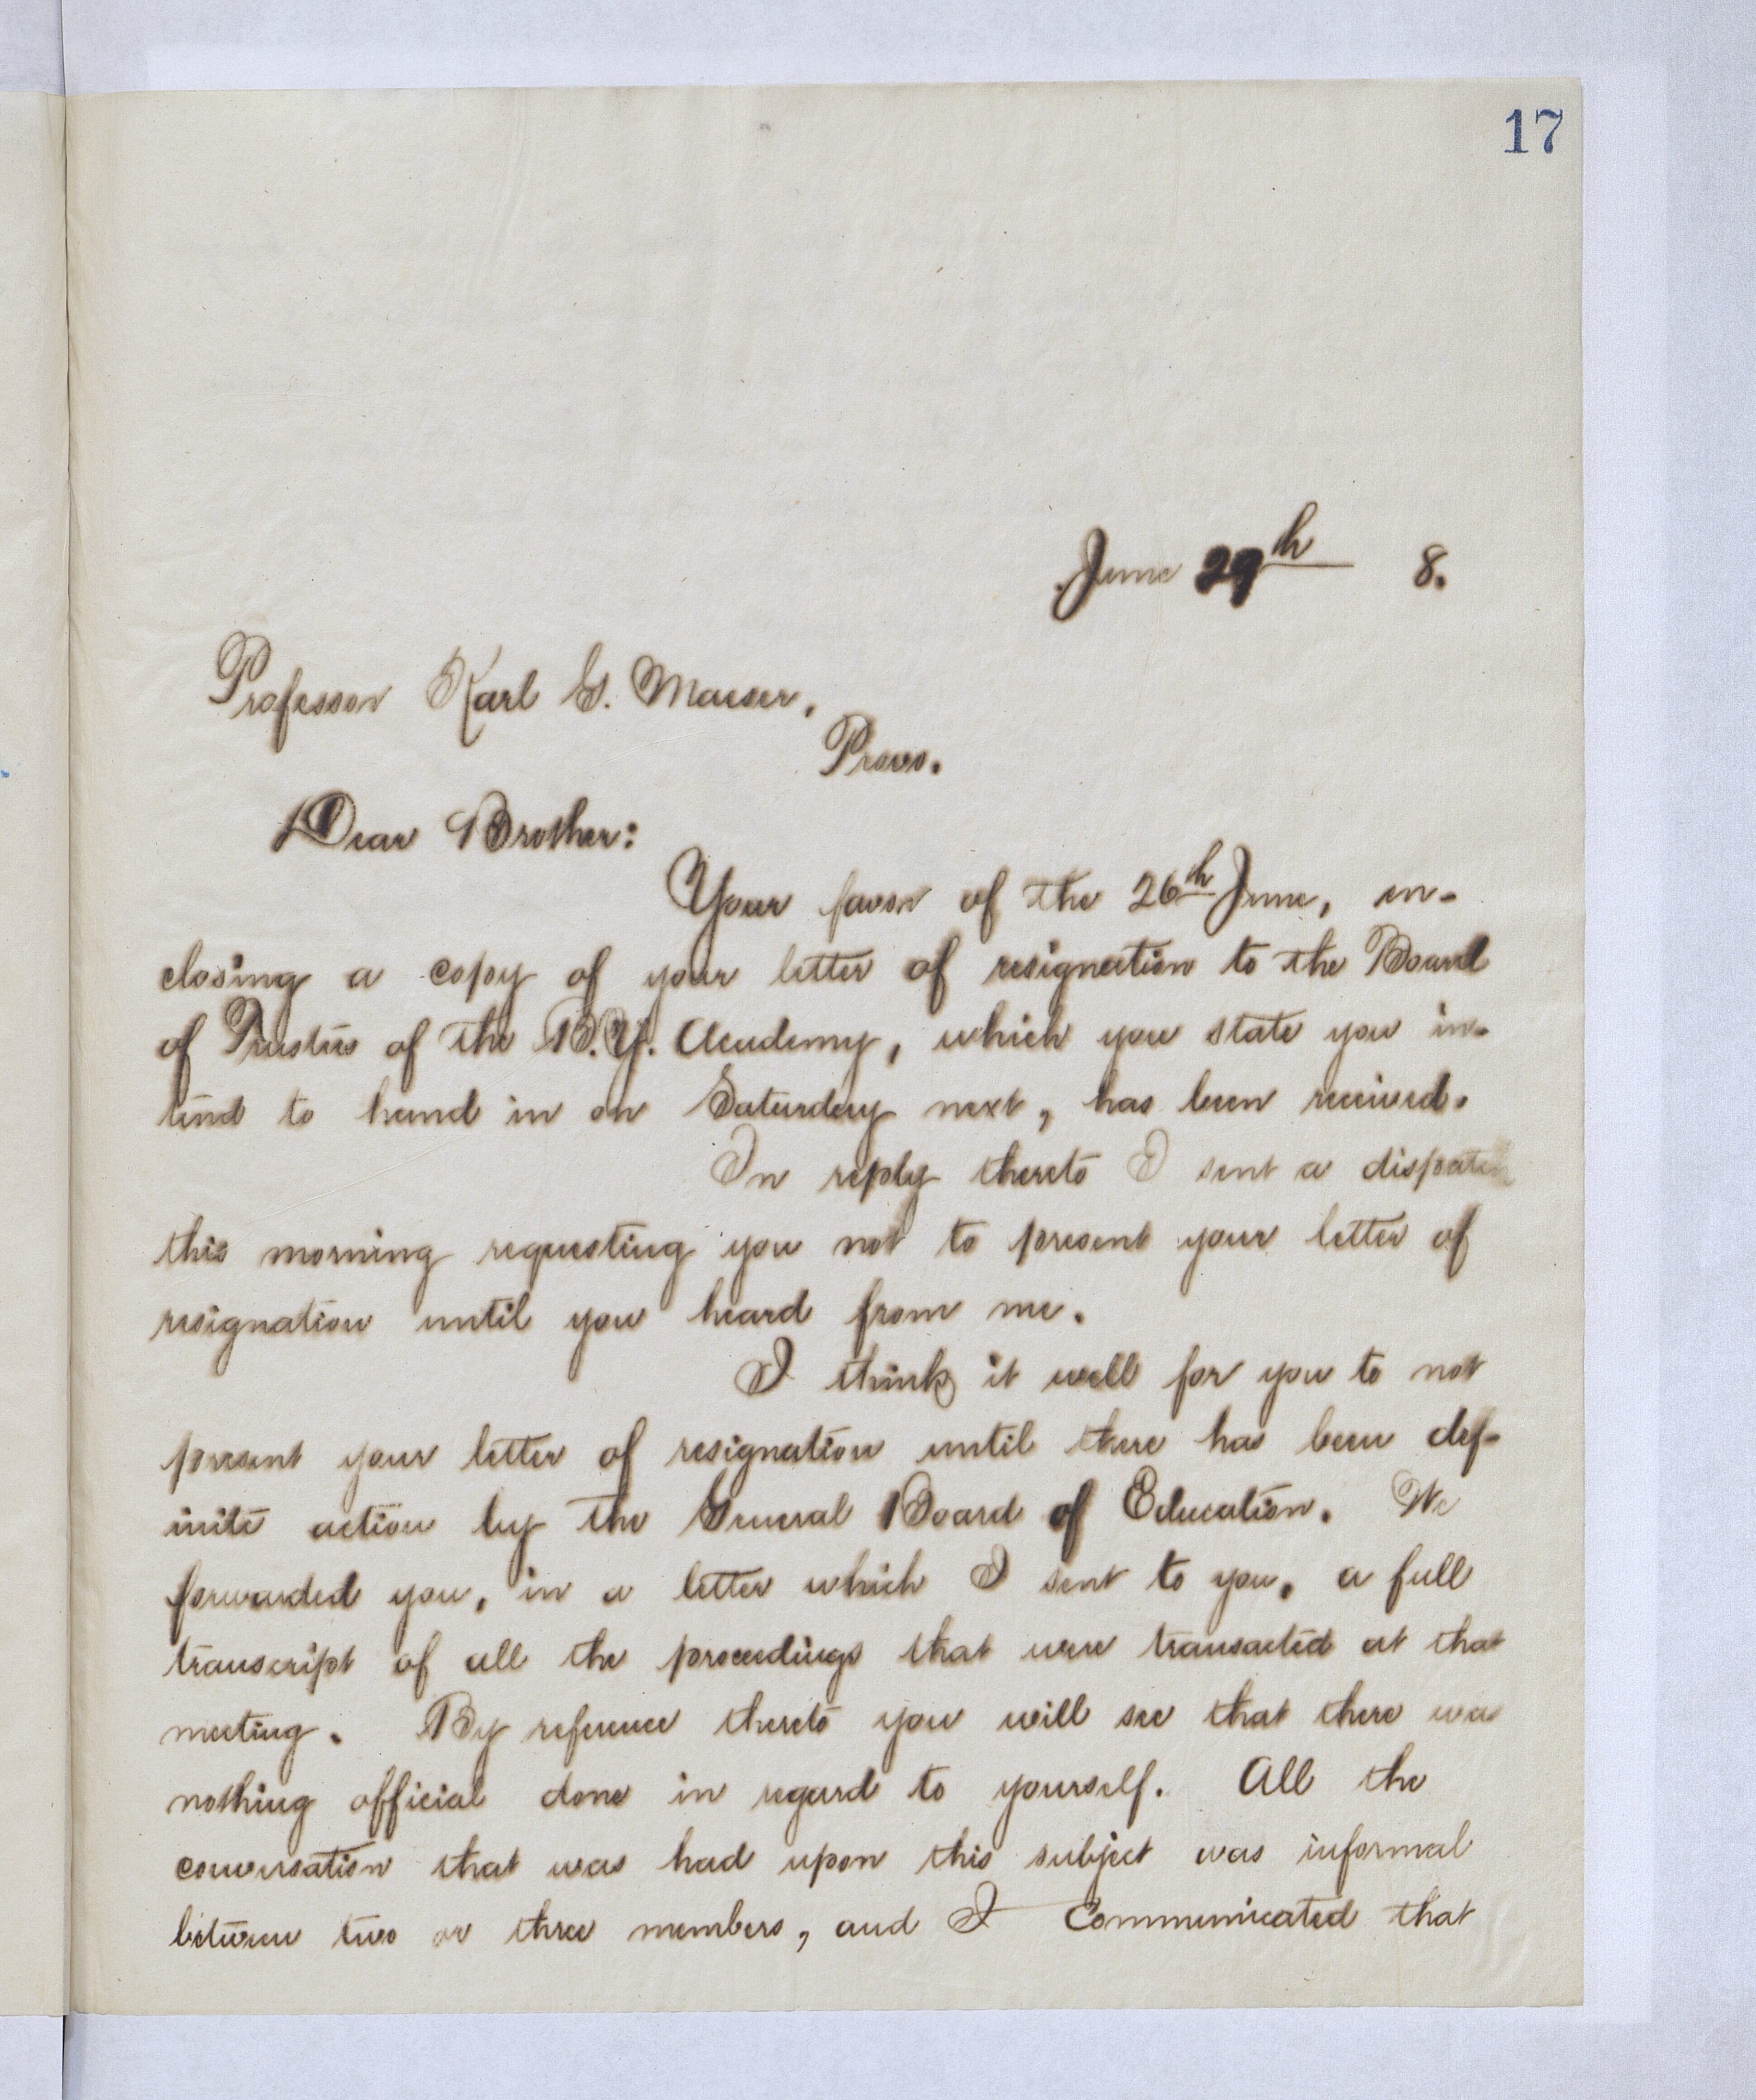 17
June 29th 8.
Professor Karl G. Maeser,
Provo.
Dear Brother:
Your favor of the 26th June, in-
closing a copy of your letter of resignation to the Board
of Trustees of the B.Y. Academy, which you state you in-
tend to hand in on Saturday next, has been received.
In reply thereto I sent a dispatch
this morning requesting you not to present your letter of
resignation until you heard from me.
I think it well for you to not
present your letter of resignation until there has been def-
inite action by the General Board of Education. We
forwarded you, in a letter which I sent to you, a full
transcript of all the proceedings that were transacted at that
meeting. By reference thereto you will see that there was
nothing official done in regard to yourself. All the
conversation that was had upon this subject was informal
between two or three members, and I communicated that